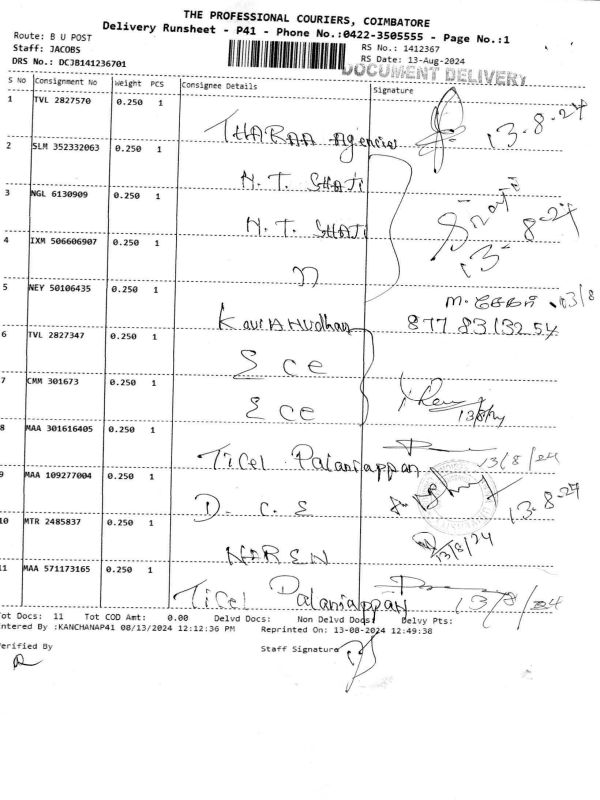 THE PROFESSIONAL COURIERS, COIMBATORE
Delivery Runsheet - P41 - Phone No.:0422-3505555 - Page No.:1
Route: B U POST
Staff: JACOBS
DRS No.: DCJB141236701
RS No.: 1412367
RS Date: 13-Aug-2024
DOCUMENT DELIVERY
S No Consignment No Weight PCS Consignee Details Signature
1 TVL 2827570 0.250 1 THARAA Agencies 13-8-24
2 SLM 352332063 0.250 1 N. T. SHAJI
3 NGL 6130909 0.250 1 N. T. SHAJI 13-8-24
4 IXM 506606907 0.250 1 n
5 NEY 50106435 0.250 1 M. 13/8
8778313254
6 TVL 2827347 0.250 1 ECE
7 CMM 301673 0.250 1 ECE 13/8/24
8 MAA 301616405 0.250 1 Ticel Palaniappan 13/8/24
9 MAA 109277004 0.250 1 D. C. E 13-8-24
10 MTR 2485837 0.250 1 NAREN 13/8/24
11 MAA 571173165 0.250 1 Ticel Palaniappan 13/8/24
Tot Docs: 11 Tot COD Amt: 0.00 Delvd Docs: Non Delvd Docs: Delvy Pts:
ntered By :KANCHANAP41 08/13/2024 12:12:36 PM Reprinted On: 13-08-2024 12:49:38
erified By Staff Signature